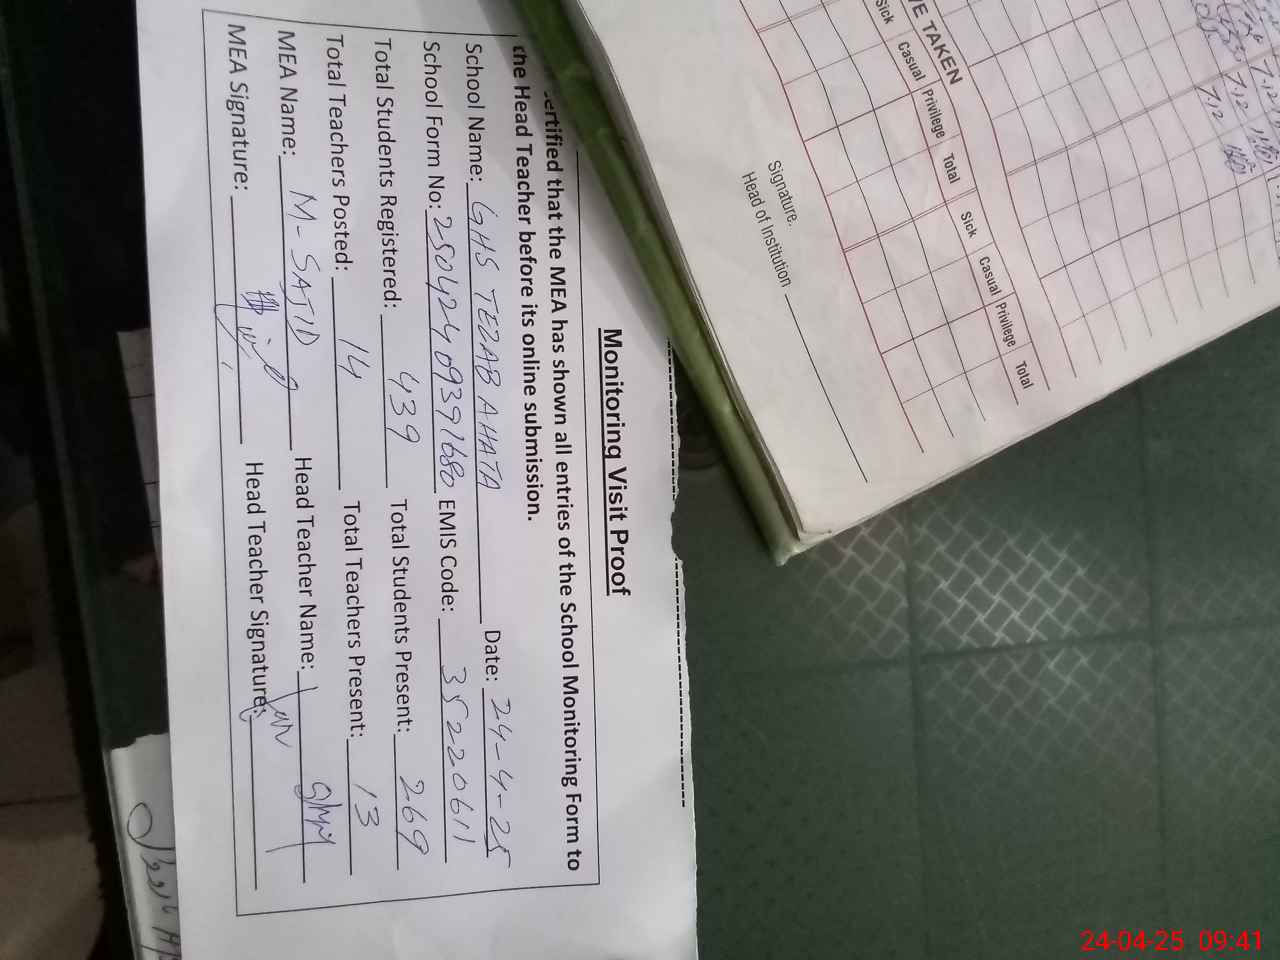 Monitoring Visit Proof
ertified that the MEA has shown all entries of the School Monitoring Form to
the Head Teacher before its online submission.
School Name: GHS TEZAB AHATA Date: 24-4-25
School Form No: 25042409391680 EMIS Code: 35220611
Total Students Registered: 439 Total Students Present: 269
Total Teachers Posted: 14 Total Teachers Present: 13
MEA Name: M- SAJID Head Teacher Name:
MEA Signature: Head Teacher Signature:
VE TAKEN
Sick Casual Privilege Total Sick Casual Privilege Total
Signature.
Head of Institution
7.12
7.12
24-04-25 09:41